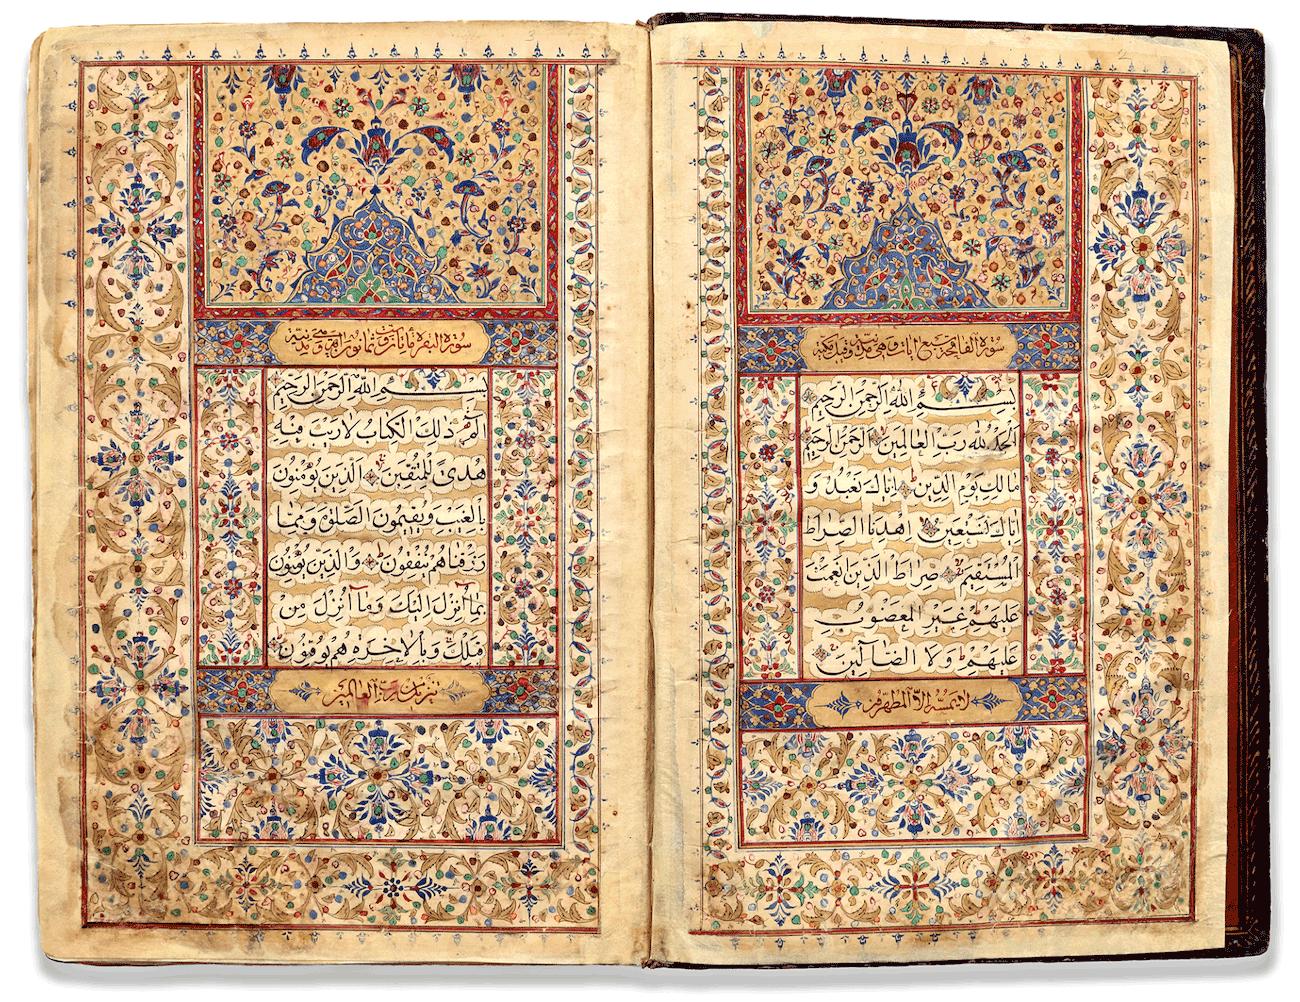 سورة الفاتحة سبع ايات وهي مدنية وقيل مكية
بسم الله الرحمن الرحيم
الحمد لله رب العالمين الرحمن الرحيم
مالك يوم الدين اياك نعبد و
اياك نستعين اهدنا الصراط
المستقيم صراط الذين انعمت
عليهم غير المغضوب
عليهم ولا الضالين
لا يمسه الا المطهرون
سورة البقرة مأتان وثمانون وهي مدنية
بسم الله الرحمن الرحيم
الم ذلك الكتاب لا ريب فيه
هدى للمتقين الذين يؤمنون
بالغيب ويقيمون الصلوة ومما
رزقناهم ينفقون والذين يؤمنون
بما انزل اليك وما انزل من
قبلك وبالاخرة هم يوقنون
تنزيل من رب العالمين